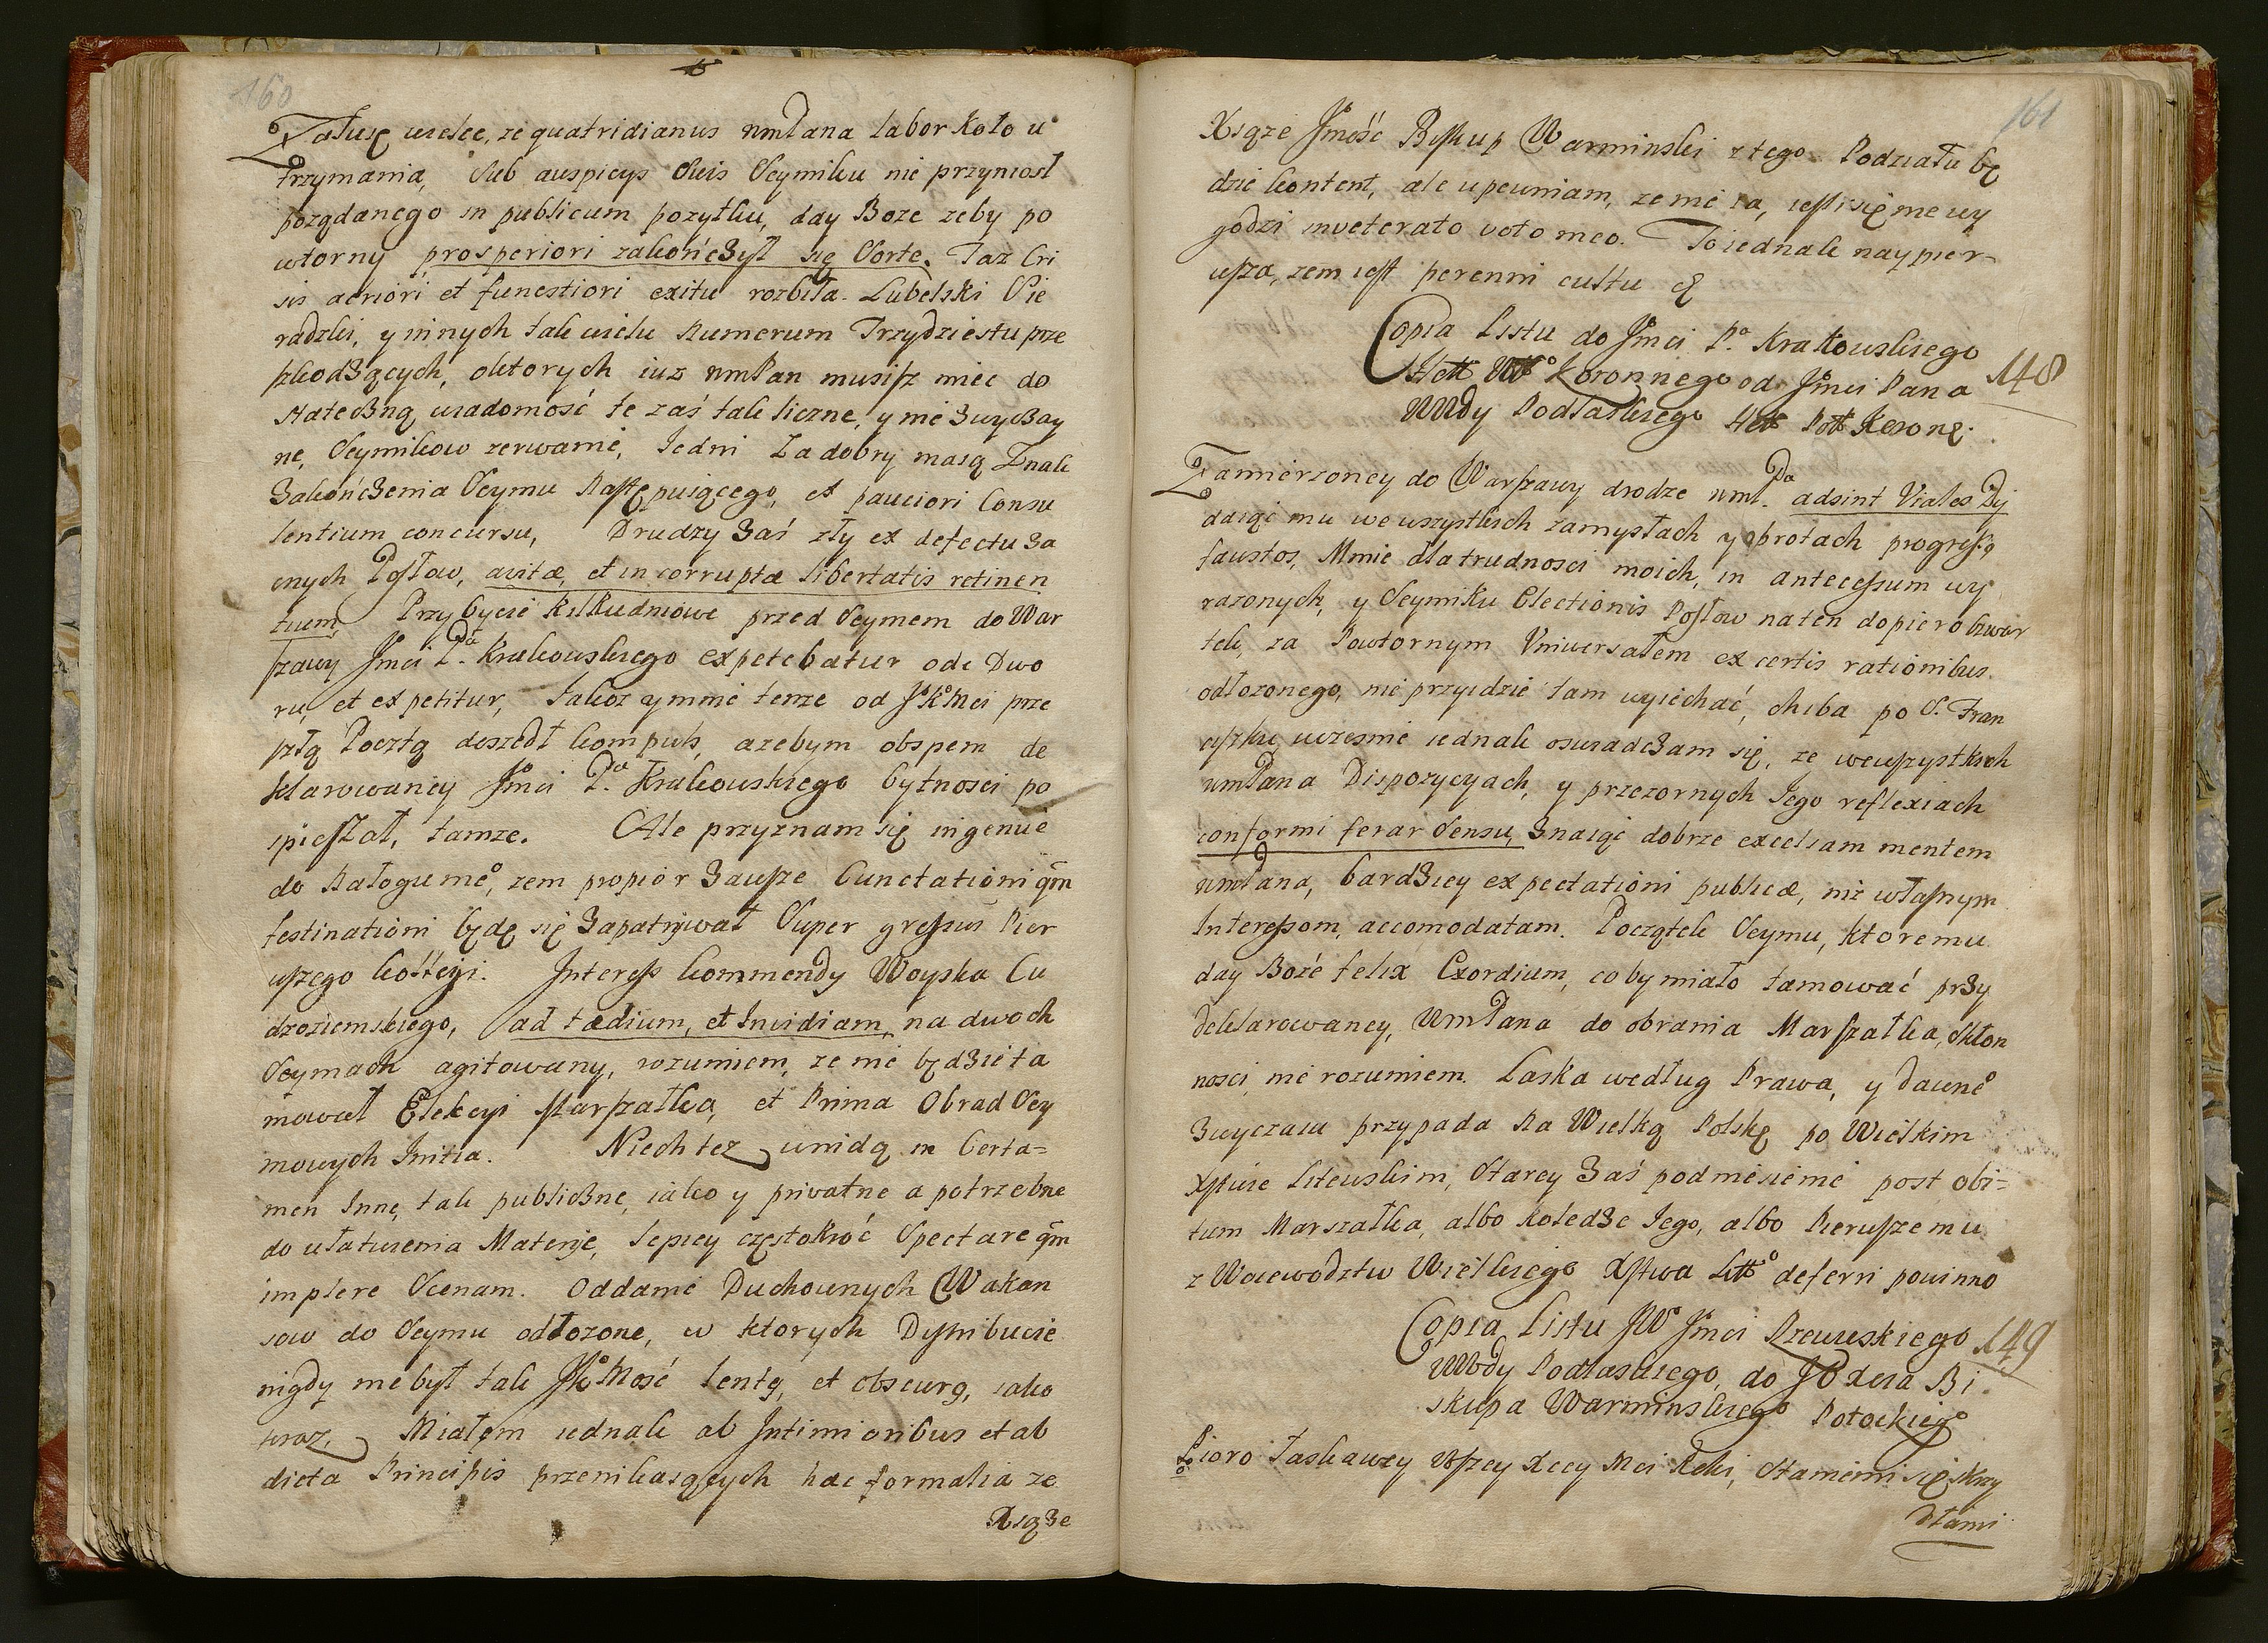 160
Załuię wielce, ze quatridianus wmPana labor koło u
trzymania, Sub auspicys Suis Seymiku nie przyniosł
poządanego in publicum pozytku, day Boze zeby po
wtorny prosperiori zakończył się Sorte. Taz Cri
sis acriori et funestiori exitu rozbiła Lubelski Sie
radzki, y innych tak wielu numerum Trzydziestu prze
szkodzących, oktorych iuz wmPan musisz miec do
stateczną wiadomość te zaś tak liczne, y nie zwyczay
ne, Seymikow zerwanie, Jedni Za dobry maią Znak
zakończenia Seymu Następuiącego, ex pauciori Consu
lentium concursu, Drudzy zaś zły ex defectu za
cnych Posłow, avitæ, et in corruptæ libertatis retinen
tium, Przybycie kilkudniowe przed Seymem do War
szawy Jmci Pa. Krakowskiego expetebatur ode Dwo
ru, et expetitur, Jakoz ymnie tenze od JKMci prze
szłą Pocztą doszedł kompuls, azebym obspem de
klarowaney Jmci Pa. Krakowskiego bytnosci po
spieszał, tamze. Ale przyznam się ingenue
do Nałogu meo, zem propior zawsze Cunctationi qm
festinationi będę się zapatrywał Super gressus Pier
wszego kollegi. Interess kommendy Woyska Cu
dzoziemskiego, ad tædium, et Invidiam, na dwoch
Seymach agitowany, rozumiem, ze nie będzie ta
mował Elekcyi Marszałka, et Prima Obrad Sey
mowych Initia. Niech tez wnidą in Certa=
men Inne, tak publiczne, iako y privatne a potrzebne
do ułatwienia Materye, lepiey częstokroć Spectare qm
implere Scenam. Oddanie Duchownych Wakan
sow do Seymu odłozone, w ktorych Dystribucie
nigdy nie był tak JKMość lentą, et obscurą, iako
teraz, Miałem iednak ab Intimioribus et ab
dicta Principis przenikaiących hæc formalia ze
Xsąze
161
Xsąze Jmość Biskup Warminski ztego Podziału bę
dzie kontent, ale upewniam, ze nie ia, iesli się nie wy
godzi inveterato voto meo. To iednak naypier=
wsza, zem iest perenni cultu &
Copia Listu do Jmci Pa. Krakowskiego
Hett Wo Koronnego od Jmci Pana
WWdy Podlaskiego Het Pol Korone.
148
Zamierzoney do Warszawy drodze wmPa. adsint Viales Dij
daiąc mu we wszystkich zamysłach y obrotach progressus
faustos, Mnie dla trudnosci moich, in antecessum wy
razonych, y Seymiku Electionis Posłow na ten dopiero kwar
tek, za Powtornym Vniwersałem ex certis rationibus
odłozonego, nie przyidzie tam wyiechać, chiba po S. Fran
ciszku, wczesnie iednak oswiadczam się, ze wewszystkich
wmPana Dispozycyach, y przezornych Jego reflexiach
conformi ferar Sensu, znaiąc dobrze excelsam mentem
wmPana, bardziey expectationi publicæ, niz własnym
Interessom, accomodatam. Początek Seymu, ktoremu
day Boze felix Exordium, coby miało tamować przy
deklarowaney, WmPana do obrania Marszałka, Skłon
nosci, nie rozumiem. Laska według Prawa, y dawneo
zwyczaiu przypada na Wielką Polskę po Wielkim
Xstwie Litewskim, Starey zaś podniesienie post obi=
tum Marszałka, albo koledze Jego, albo Pierwszemu
z Woiewodztw Wielkiego Xstwa Litto deferri powinno
Copia Listu JW Jmci Rzewuskiego
WWdy Podlaskiego, do JO Xcia Bi
skupa Warminskiego Potockiego
149
Pioro łaskawey Wszey Xcey Mci Ręki, Stanie mi się skrzy
dłami